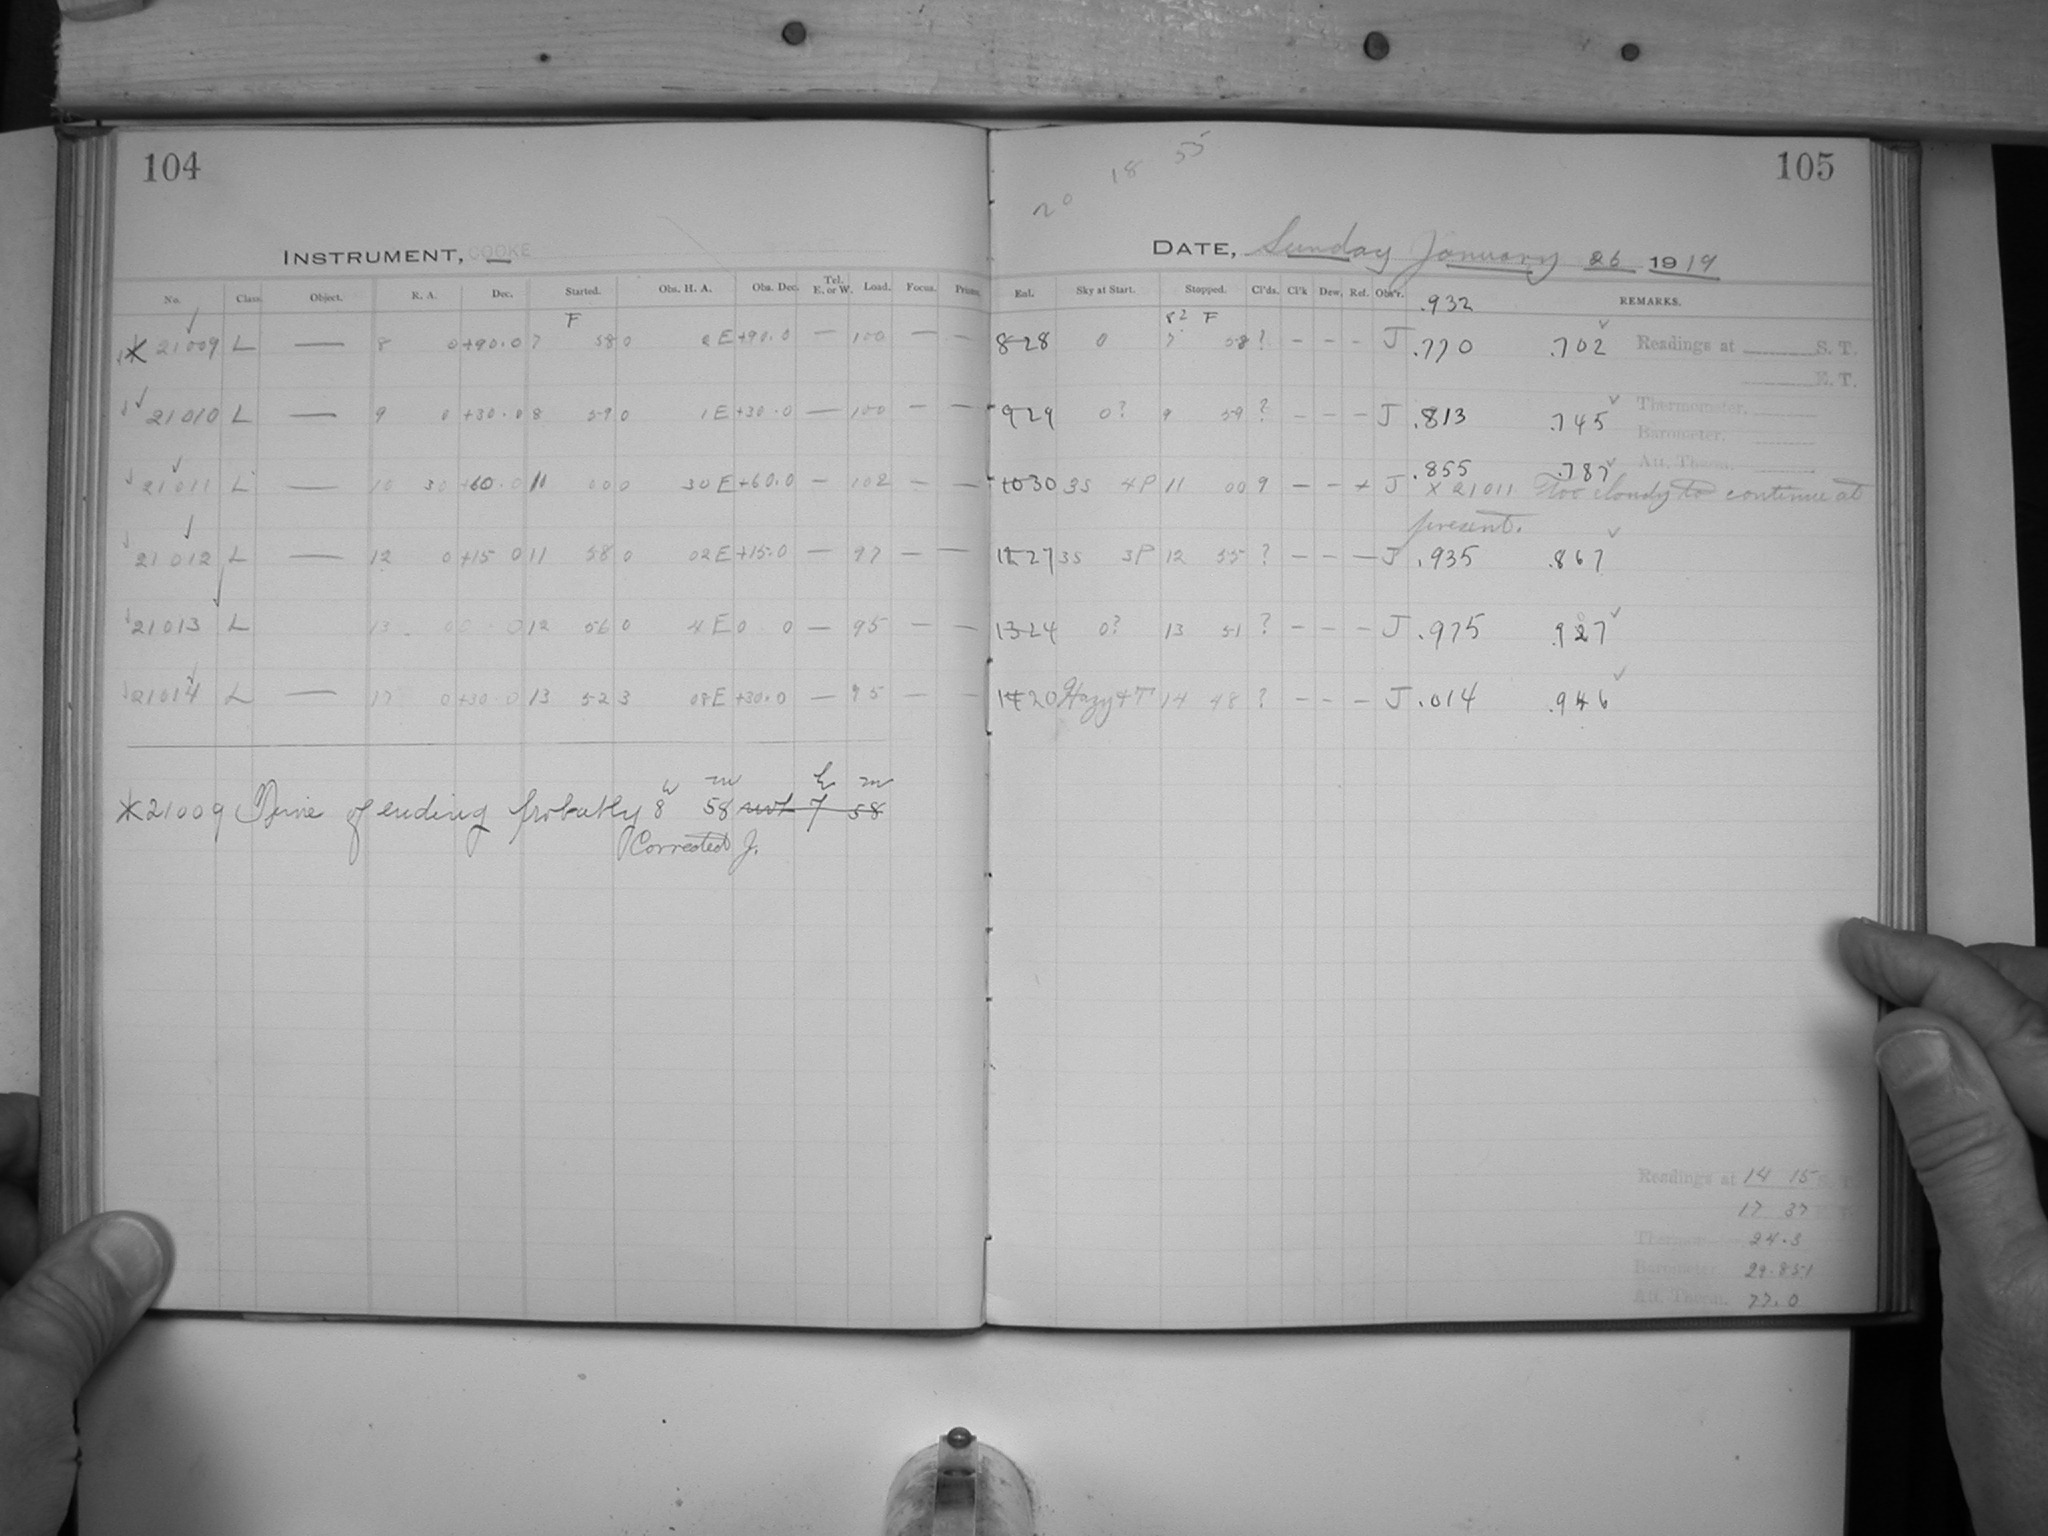 104
INSTRUMENT, COOKE
No. Class. Object. R. A. Dec. Started. Obs. H. A. Obs. Dec. Tel. E. or W. Load. Focus. Prisms.
F
21009 L — 8 0 +90.0 7 58 0 E +90.0 — 100 — —
21010 L — 9 0 +30.0 8 59 0 1 E +30.0 — 100 — —
21011 L — 10 30 +60.0 11 00 0 30 E +60.0 — 102 — —
21012 L — 12 0 +15 0 11 58 0 02 E +15.0 — 97 — —
21013 L 13 0 0 0 12 56 0 4 E 0 0 — 95 — —
21014 L — 17 0 +30 0 13 52 3 08 E +30.0 — 95 — —
h m h m
*21009 Time of ending probably 8 58 not 7 58
Corrected J.
20 18 55
105
DATE, Sunday January 26 1919
Ent. Sky at Start. Stopped. Cl'ds. Cl'k Dew. Ref. Obs'r. REMARKS.
.932
8? F
8-28 0 7 58 ? - - - J .770 .702 Readings at S. T.
E. T.
9-29 0? 9 59 ? - - - J .813 .745 Thermometer,
Barometer,
Att. Therm.
.855 .787
1030 3S 4P 11 00 9 - - + J × 21011 Too cloudy to continue at
present.
1227 3S 3P 12 55 ? - - — J .935 .867
1324 0? 13 51 ? - - - J .975 .927
1420 Hazy+T 14 48 ? - - - J .014 .946
Readings at 14 15 S. T.
17 37
Therm. 24.3
Barometer 29.851
Att. Therm. 77.0